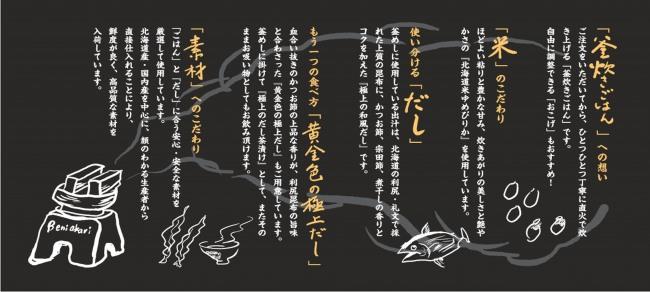 「釜炊きごはん」への想い
ご注文をいただいてから、ひとつひとつ丁寧に直火で炊
き上げる「釜炊きごはん」です。
自由に調整できる「おこげ」もおすすめ！
「米」のこだわり
ほどよい粘りと豊かな甘み、炊きあがりの美しさと艶や
かさの『北海道米ゆめぴりか』を使用しています。
使い分ける「だし」
釜めしに使用している出汁は、北海道の利尻・礼文で採
れた上質の昆布に、かつお節、宗田節、煮干しの香りと
コクを加えた『極上の和風だし』です。
もう一つの食べ方「黄金色の極上だし」
血合い抜きのかつお節の上品な香りが、利尻昆布の旨味
と合わさった『黄金色の極上だし』もご用意しています。
釜めしに掛けて『極上のだし茶漬け』として、またその
ままお吸い物としてもお飲み頂けます。
「素材」へのこだわり
「ごはん」と「だし」に合う安心・安全な素材を
厳選して使用しています。
北海道産・国内産を中心に、顔のわかる生産者から
直接仕入れることにより、
鮮度が良く、高品質な素材を
入荷しています。
Beniakari